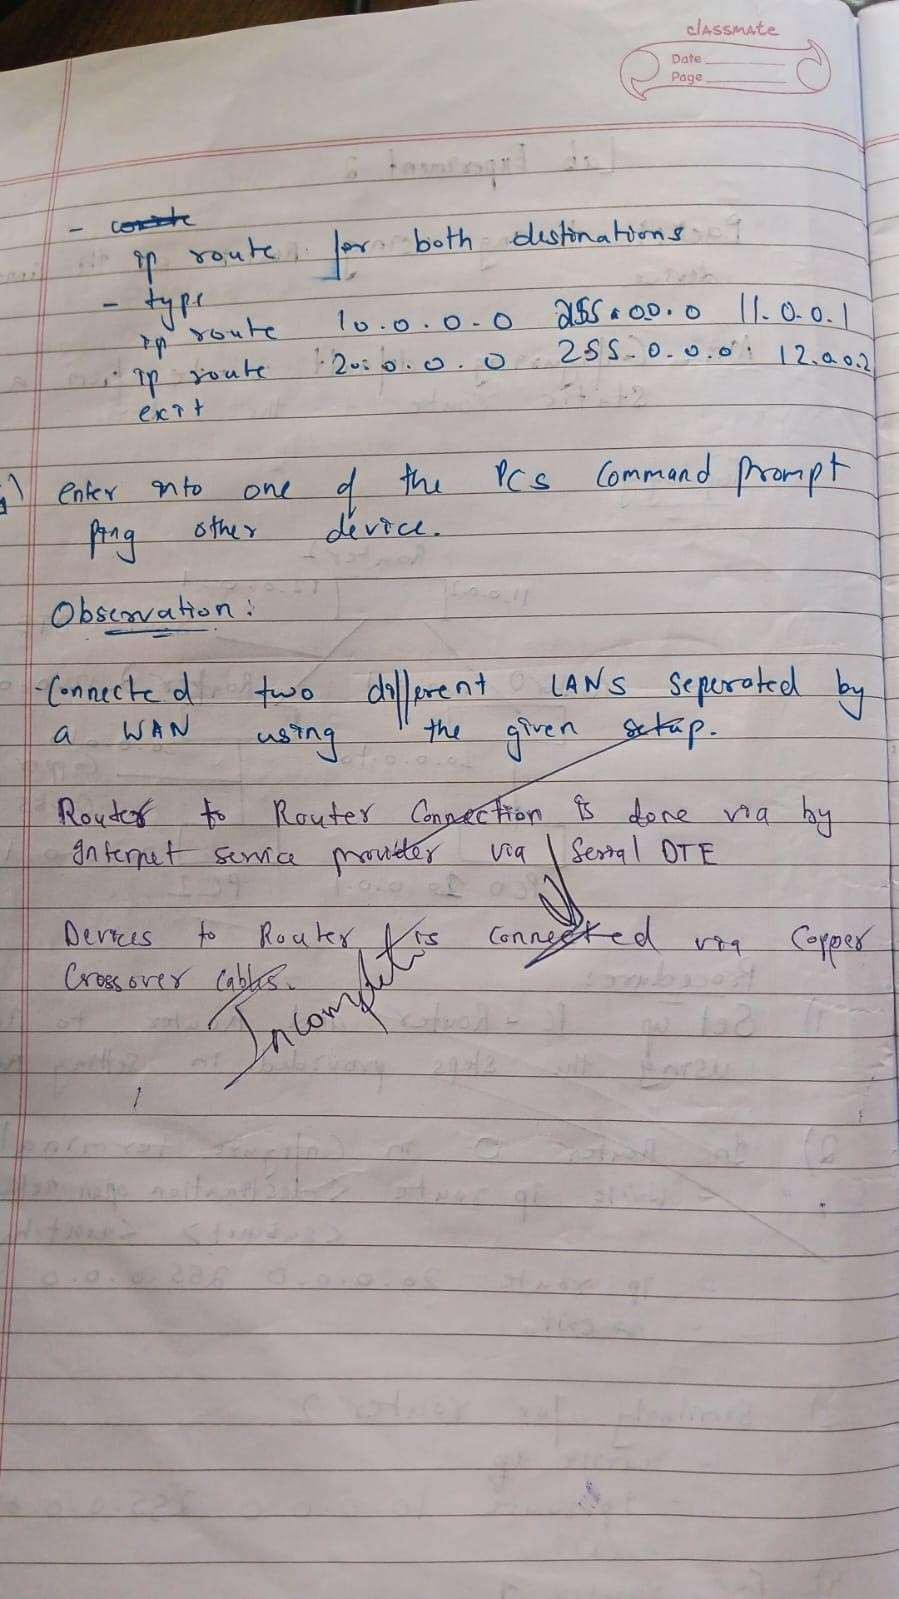 classmate
Date
Page
- write
ip route for both destinations
- type
ip route 10.0.0.0 255.0.0.0 11.0.0.1
ip route 20.0.0.0 255.0.0.0 12.0.0.2
exit
enter into one of the PCs Command Prompt
ping other device.
Observation:
- Connected two different LANS seperated by
a WAN using the given setup.
Router to Router Connection is done via by
Internet service provider via Serial DTE
Devices to Router is connected via Copper
Crossover Cables.
Incomplete